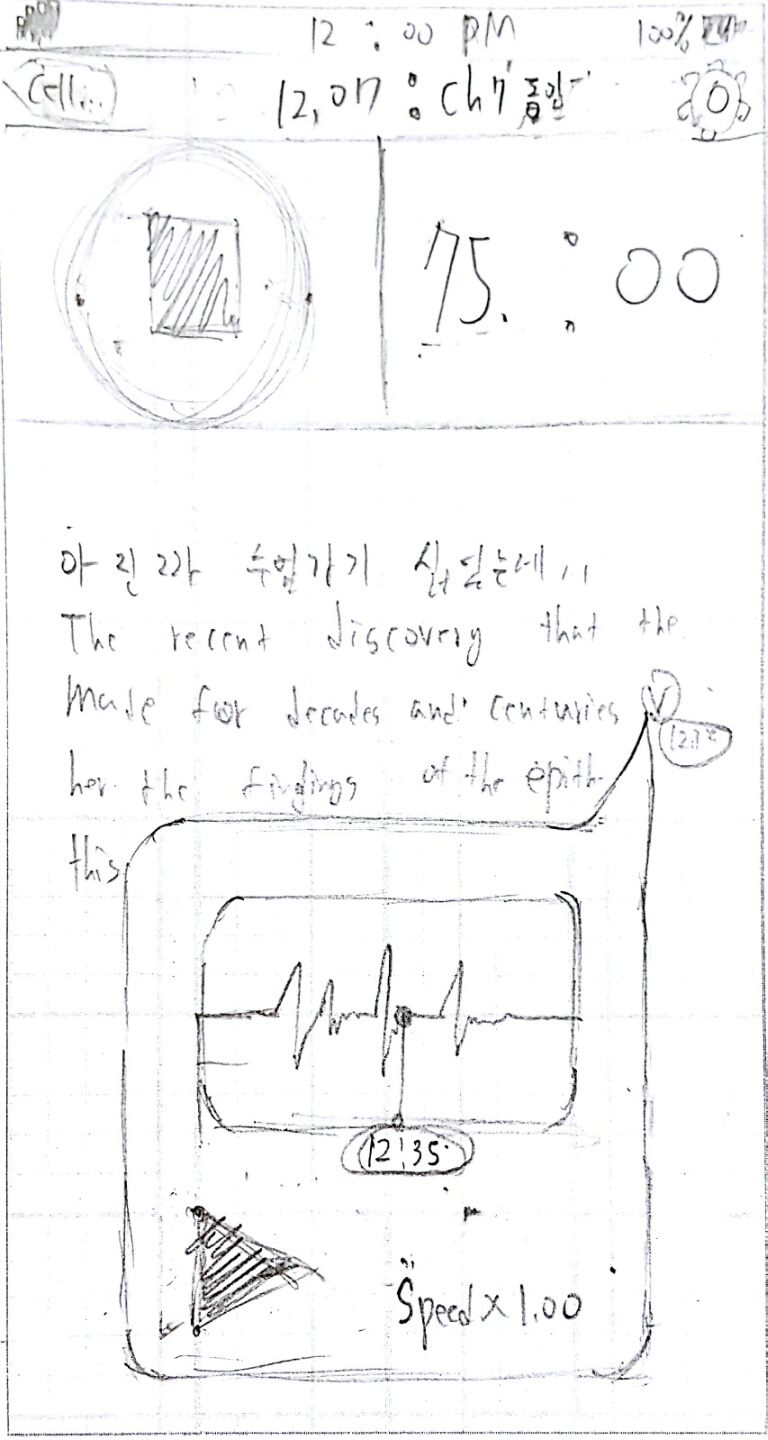 12 : 00 PM 100%
Cell... 12,07 : ch7
75. : 00
아 진짜 수업가기 싫었는데,,
The recent discovery that the
Made for decades and centuries V
her the findings of the epith
this
12:35
Speed x 1.00